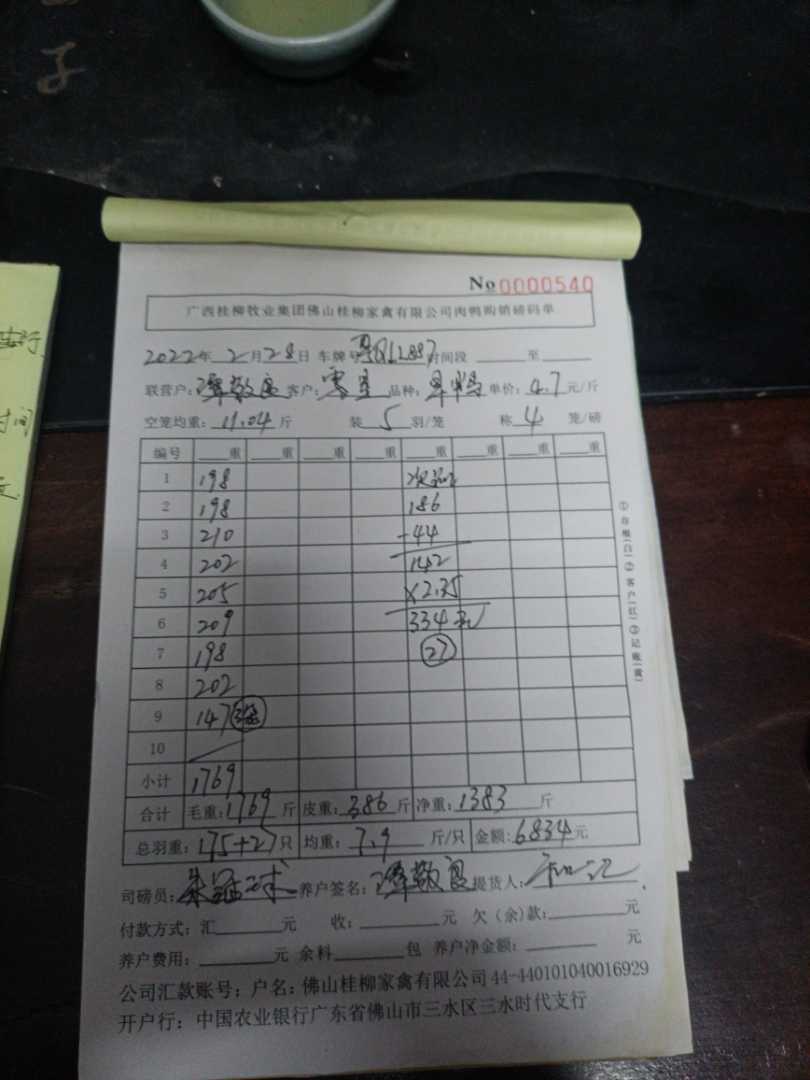 子
No 0000540
广西桂柳牧业集团佛山桂柳家禽有限公司肉鸭购销磅码单
2022年 2月 28日 车牌号 时间段 至
联营户: 谭敬良 客户: 零星 品种: 旱鸭 单价: 4.7 元/斤
空笼均重: 11.04 斤 装 5 羽/笼 称 4 笼/磅
编号 重 重 重 重 重 重 重 重
1 198 次品
2 198 186
3 210 -44
4 202 142
5 205 ×2.35
6 209 334元
7 198 27
8 202
9 147 3笼
10
小计 1769
合计 毛重: 1769 斤 皮重: 386 斤 净重: 1383 斤
总羽重: 175+27 只 均重: 7.9 斤/只 金额: 6834元
司磅员: 养户签名: 谭敬良 提货人:
付款方式: 汇 元 收: 元 欠(余)款: 元
养户费用: 元 余料 包 养户净金额: 元
公司汇款账号; 户名: 佛山桂柳家禽有限公司 44-440101040016929
开户行: 中国农业银行广东省佛山市三水区三水时代支行
①存根(白)②客户(红)③记账(黄)
时间